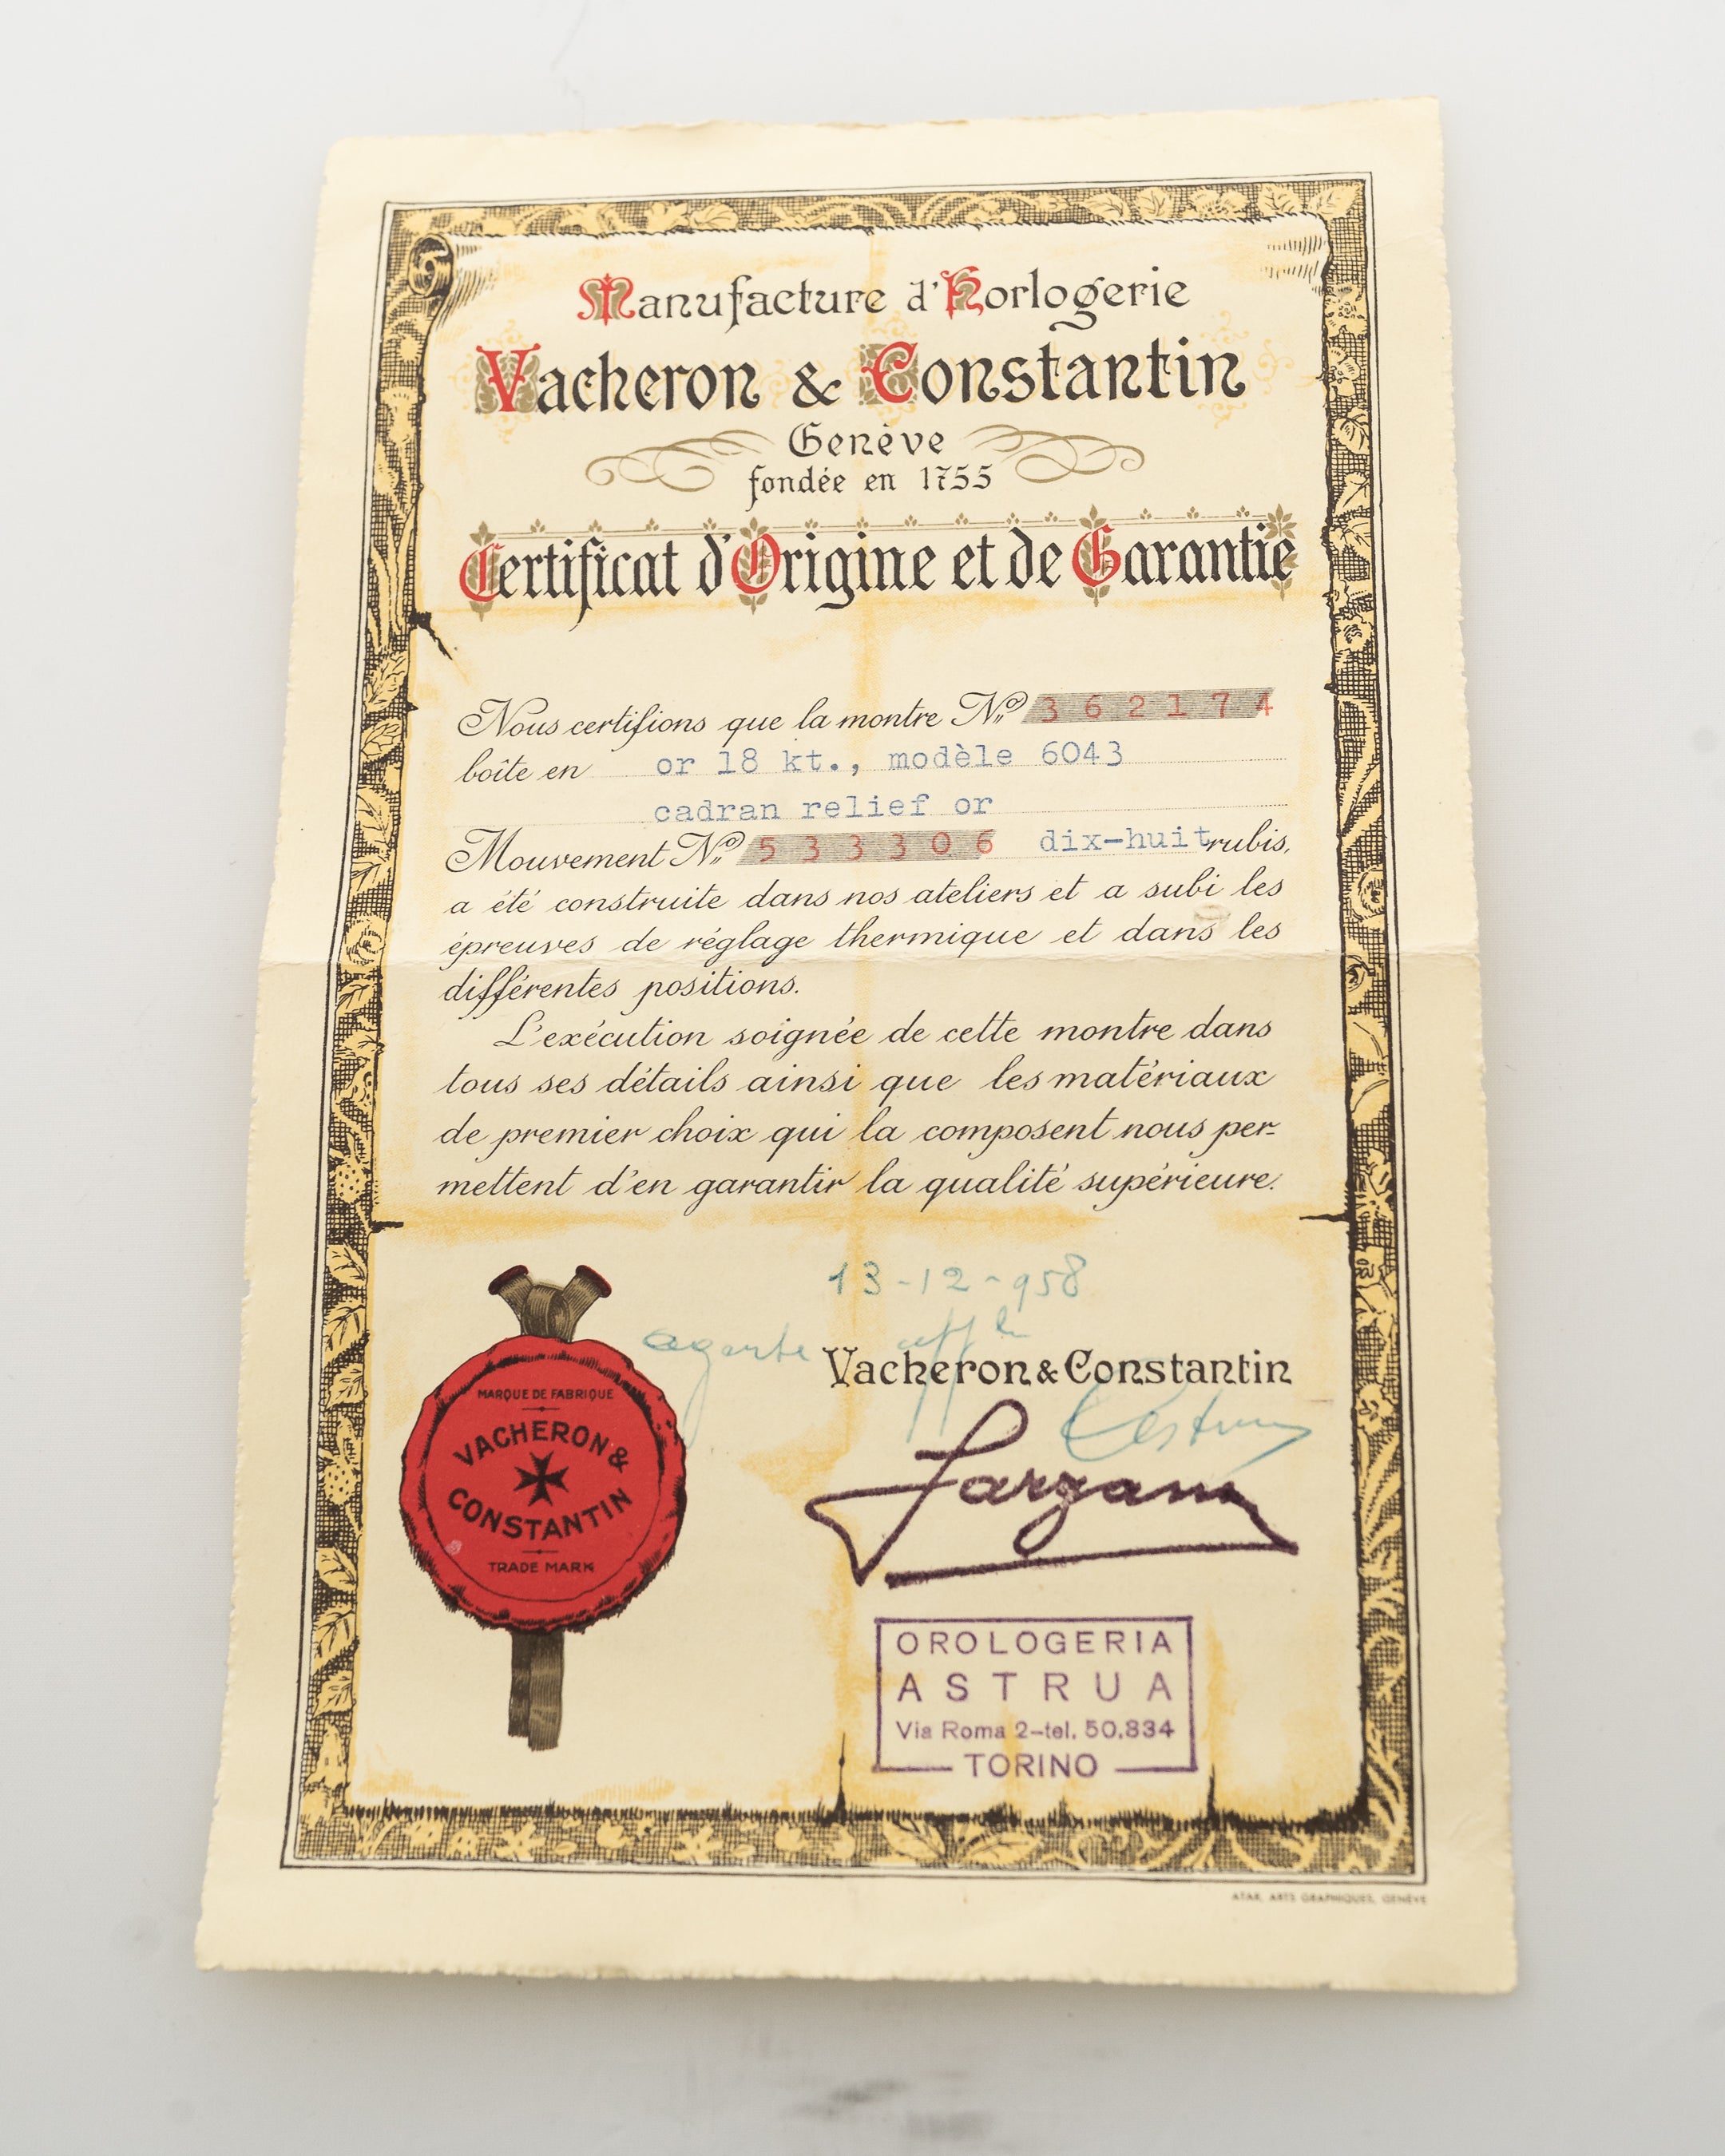 Manufacture d'Horlogerie
Vacheron & Constantin
Genève
fondée en 1755
Certificat d'Origine et de Garantie
Nous certifions que la montre Nº 362174
boîte en or 18 kt., modèle 6043
cadran relief or
Mouvement Nº 533306 dix-huit rubis,
a été construite dans nos ateliers et a subi les
épreuves de réglage thermique et dans les
différentes positions.
L'exécution soignée de cette montre dans
tous ses détails ainsi que les matériaux
de premier choix qui la composent nous per-
mettent d'en garantir la qualité supérieure.
13-12-958
agente
Vacheron & Constantin
MARQUE DE FABRIQUE
VACHERON &
CONSTANTIN
TRADE MARK
OROLOGERIA
ASTRUA
Via Roma 2-tel. 50.834
TORINO
ATAR, ARTS GRAPHIQUES, GENÈVE